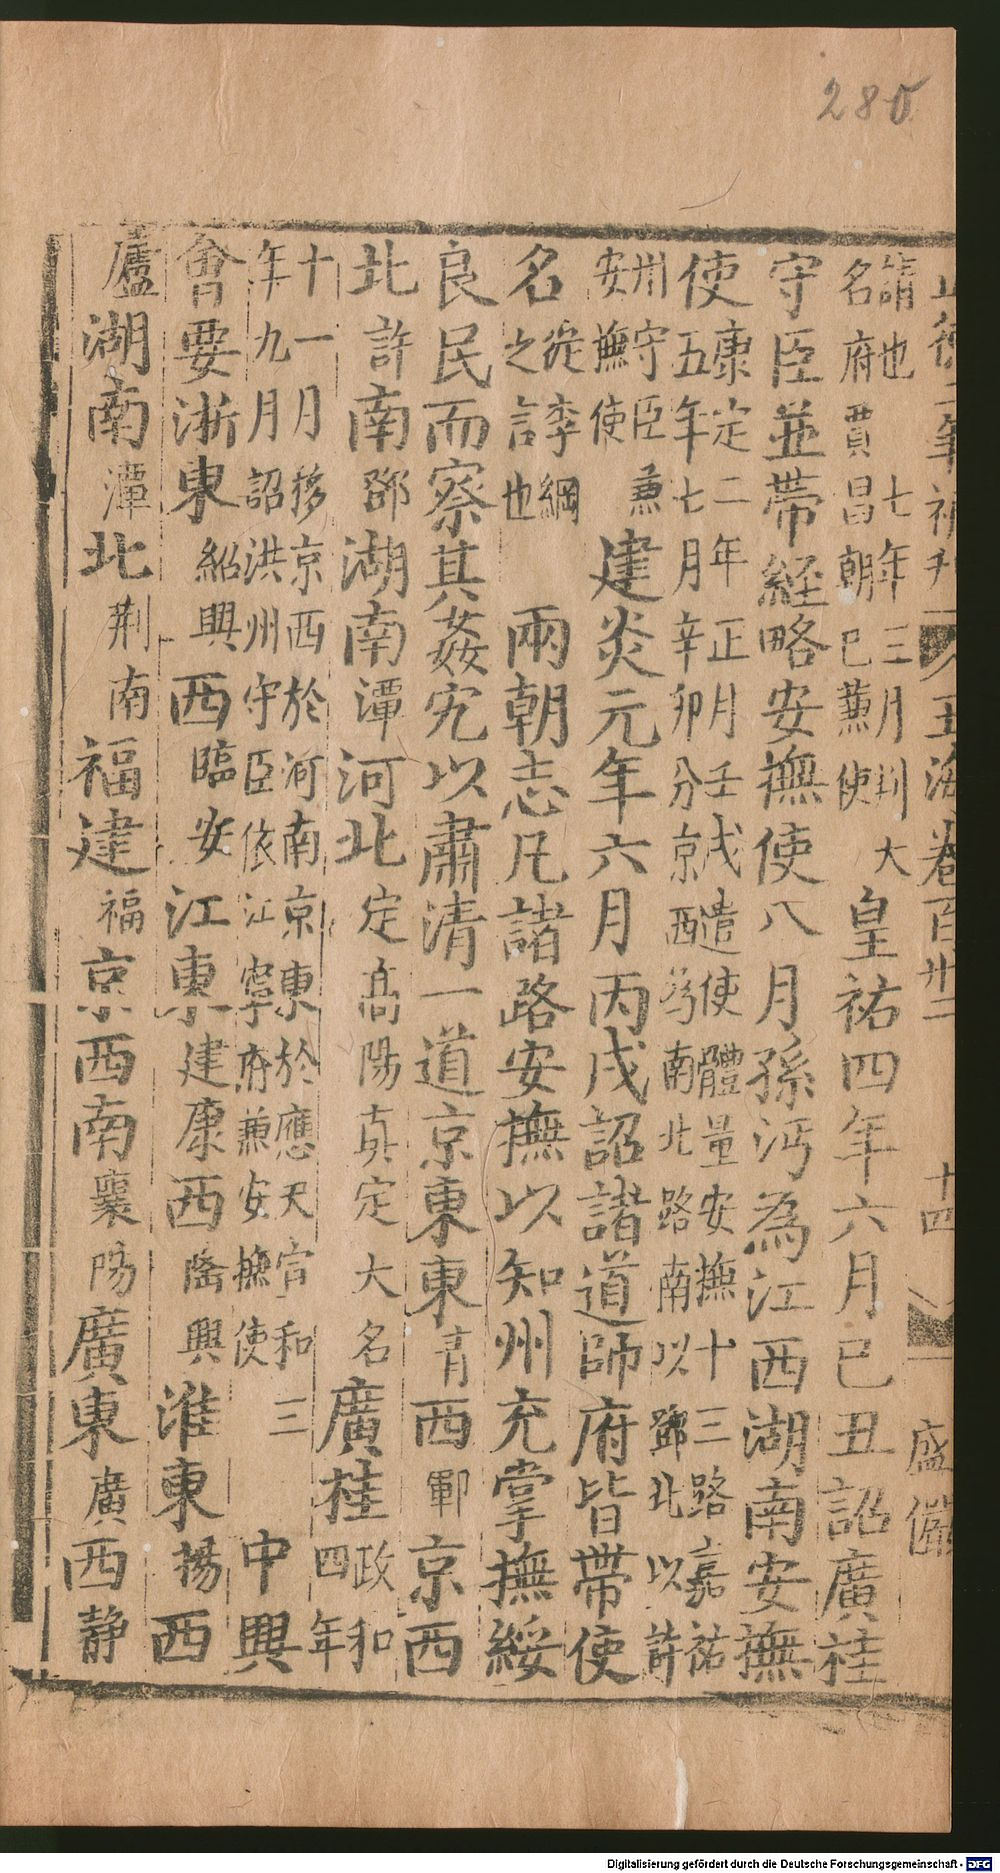 280
正德二年補刊 玉海卷百卅二 十四 盛儼
請也七年三月判大
名府賈昌朝已兼使
皇祐四年六月己丑詔廣桂
守臣並帶経略安撫使八月孫沔為江西湖南安撫
使
康定二年正月壬戌遣使體量安撫十三路嘉祐
五年七月辛卯分京西為南北路南以鄧北以許
州守臣兼
安撫使
建炎元年六月丙戌詔諸道帥府皆帶使
名
從李綱
之言也
兩朝志凡諸路安撫以知州充掌撫綏
良民而察其姦宄以肅清一道京東東青西鄆京西
北許南鄧湖南潭河北定高陽真定大名廣桂
政和
四年
十一月移京西於河南京東於應天宣和三
年九月詔洪州守臣依江寧府兼安撫使
中興
會要浙東紹興西臨安江東建康西隆興淮東揚西
廬湖南潭北荆南福建福京西南襄陽廣東廣西静
Digitalisierung gefördert durch die Deutsche Forschungsgemeinschaft - DFG